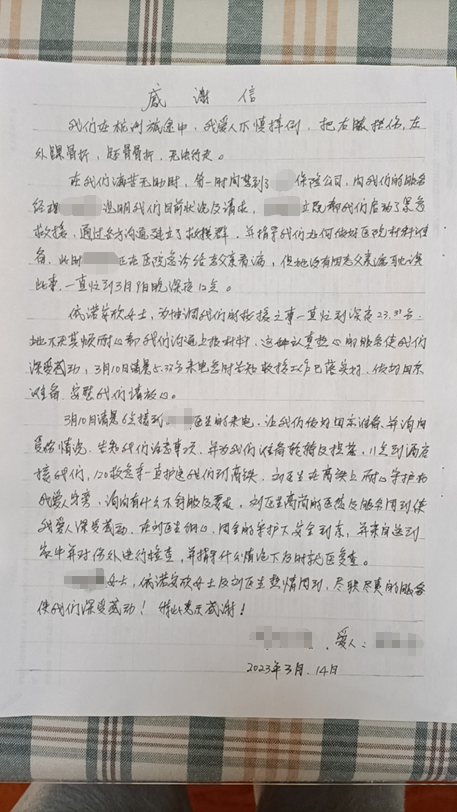 感谢信
我们在杭州旅途中，我爱人不慎摔倒，把右膝挫伤，左
外踝骨折，跖骨骨折，无法行走。
在我们痛苦无助时，第一时间想到了 保险公司，向我们的服务
经理 说明我们目前状况及请求， 立即帮我们启动了紧急
救援，通过各方沟通建立了救援群，并指导我们如何做好医院材料准
备，此时 正在医院急诊给老父亲看病，但她没有因老父亲
此事，一直忙到3月9日晚深夜12点。
依诺安欣女士，为协调我们的救援之事一直忙到深夜23.31分
她不厌其烦耐心帮我们沟通上报材料，这种认真热心的服务使我们
深受感动，3月10日清晨5.33分来电及时告知救援工作已落实好，做好回京
准备，安慰我们请放心。
3月10日清晨6点接到 医生的来电，让我们做好回京准备，并询问
情况，告知我们注意事项，并为我们准备轮椅及拐杖，11点到酒店
接我们，120救急车一直护送我们到高铁，刘医生在高铁上耐心守护为
我爱人 ，询问有什么不舒服及要求，刘医生高尚的医德及服务周到使
我爱人深受感动，在刘医生细心、周全的守护下安全到京，并亲自送到
家中并对伤处进行检查，并指导什么情况下及时到医院复查。
女士，依诺安欣女士及刘医生热情周到，尽职尽责的服务
使我们深受感动！特此表示感谢！
爱人：
2023年3月.14日